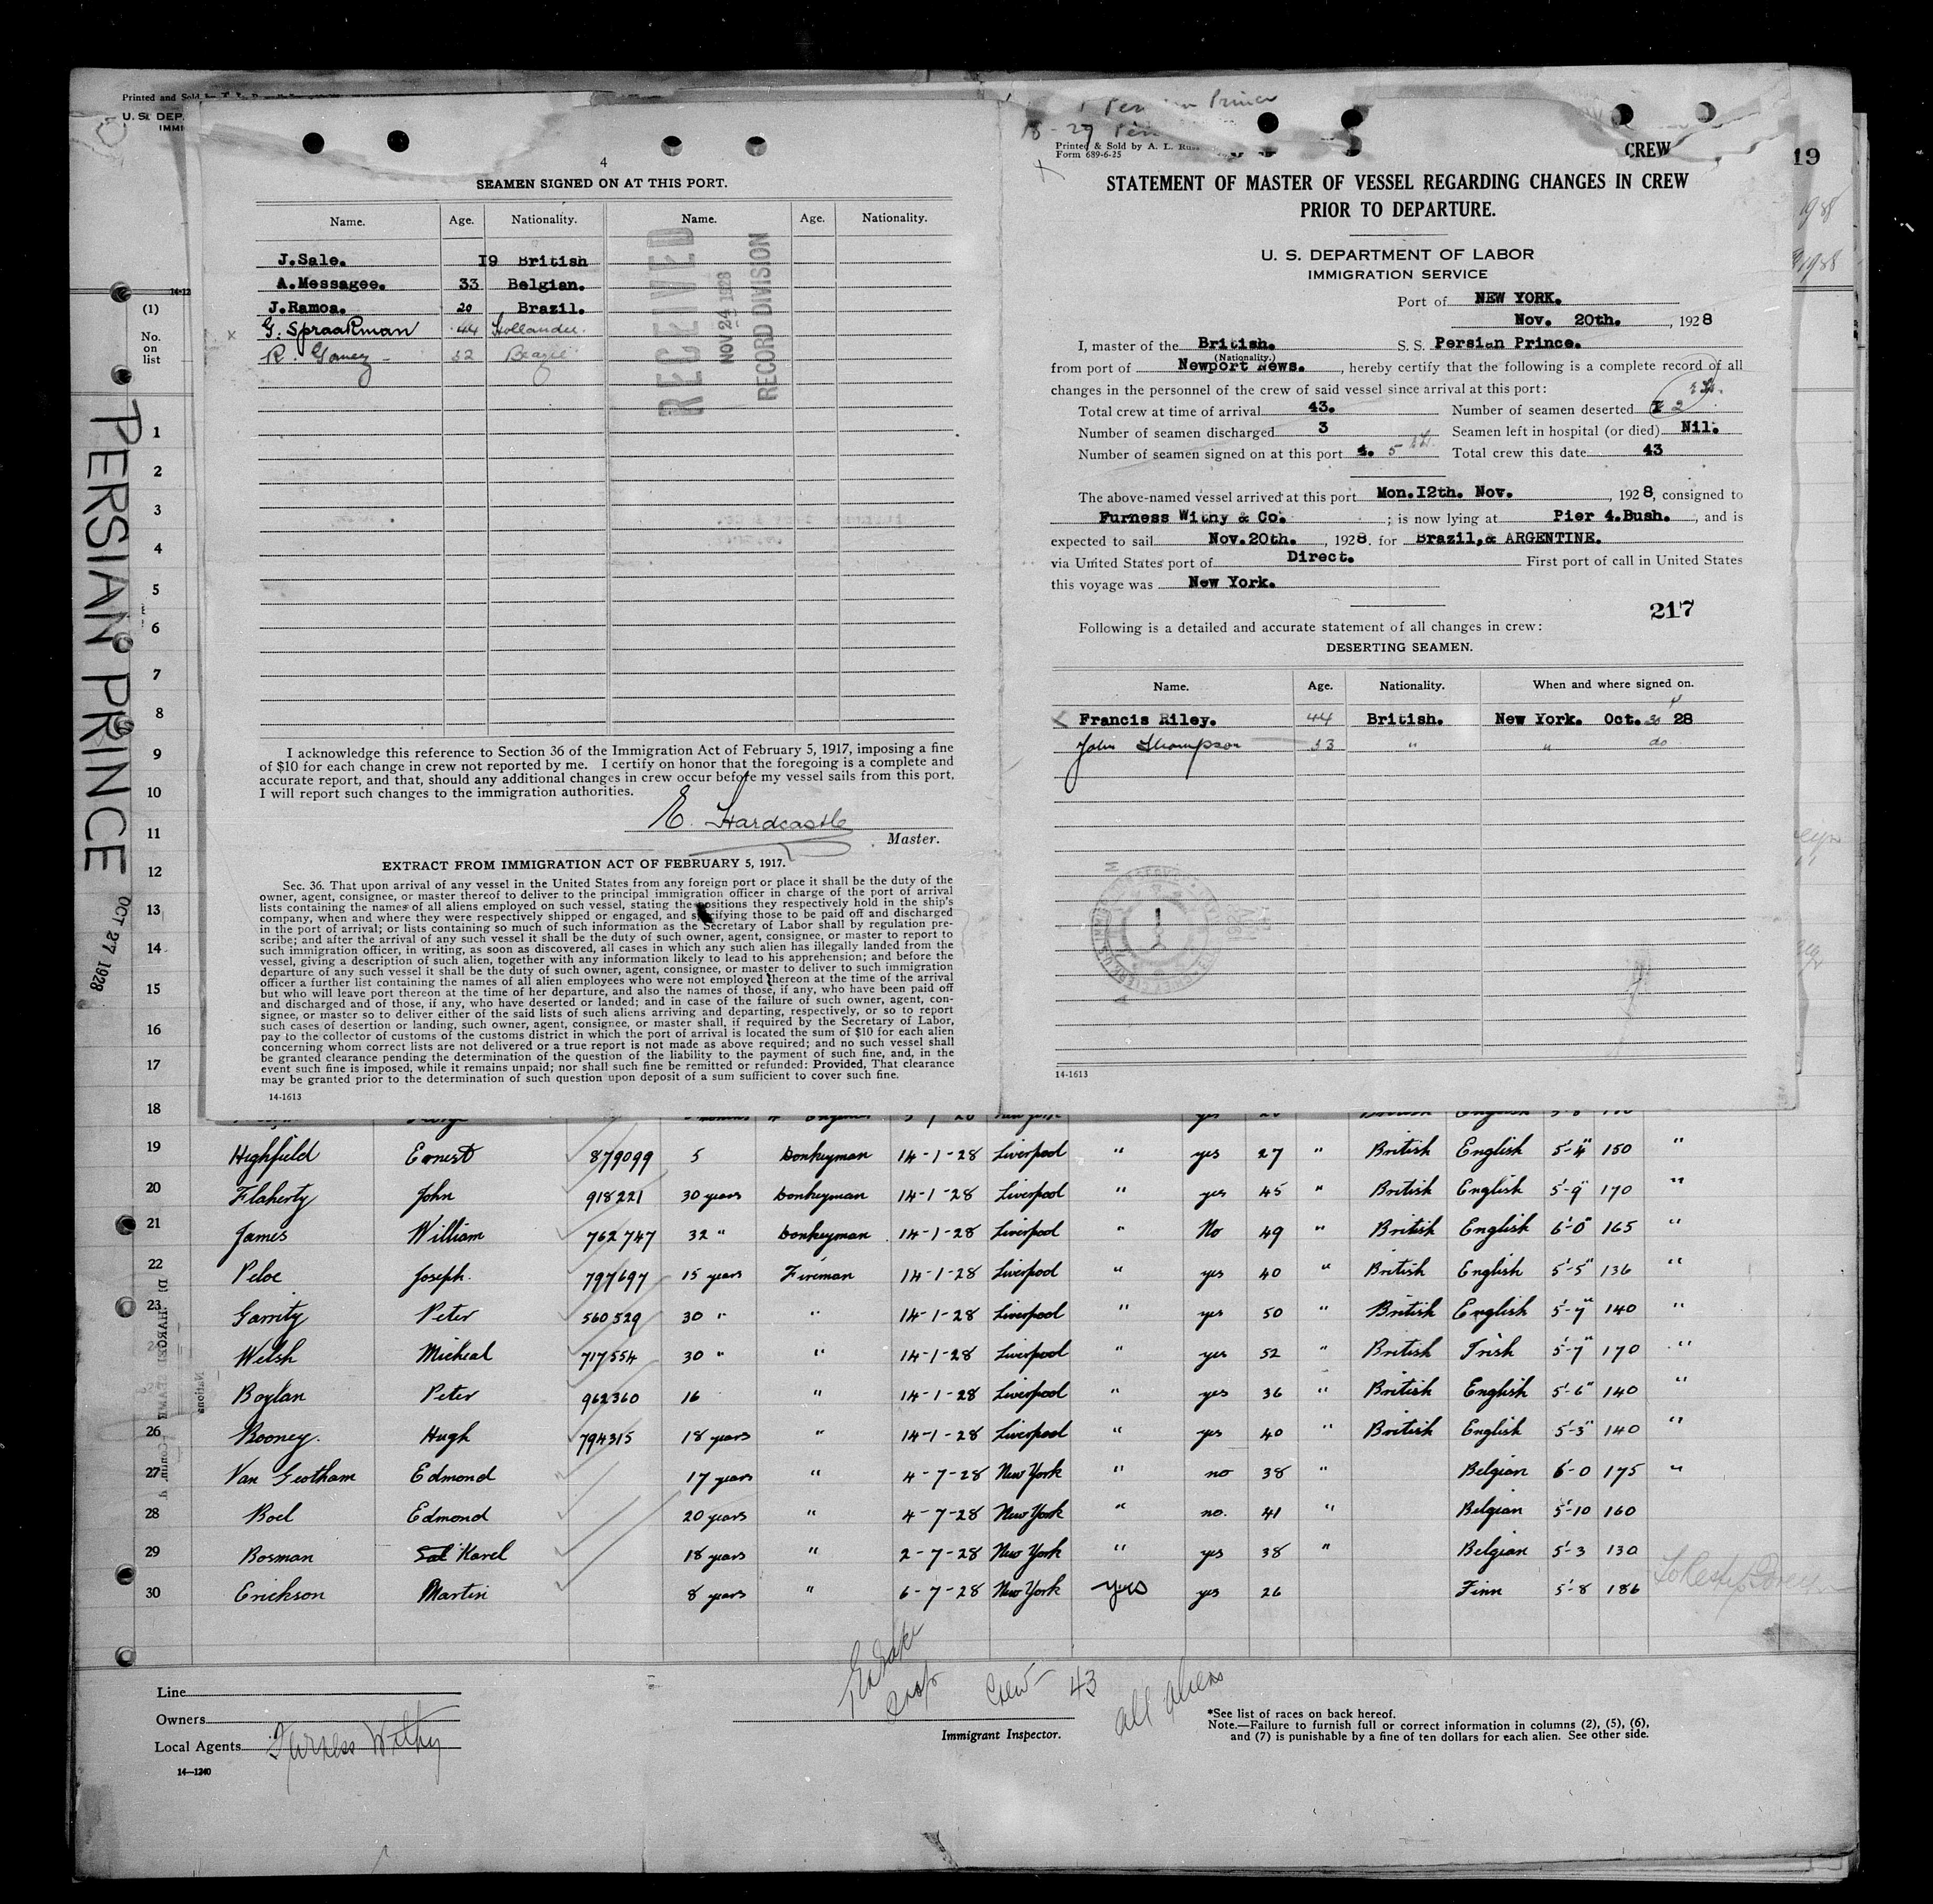 Printed and Sold by
U. S. DEP.
IMMI
(1)
No.
on
list
PERSIAN PRINCE
OCT 27 1928
4
SEAMEN SIGNED ON AT THIS PORT.
Name. Age. Nationality. Name. Age. Nationality.
J.Sale. I9 British
A.Messagee. 33 Belgian.
J.Ramos. 20 Brazil.
x G. Spraakman 44 Hollander.
R. Gomez 32
RECEIVED
NOV 24 1928
RECORD DIVISION
I acknowledge this reference to Section 36 of the Immigration Act of February 5, 1917, imposing a fine
of $10 for each change in crew not reported by me. I certify on honor that the foregoing is a complete and
accurate report, and that, should any additional changes in crew occur before my vessel sails from this port,
I will report such changes to the immigration authorities.
E. Hardcastle
Master.
EXTRACT FROM IMMIGRATION ACT OF FEBRUARY 5, 1917.
Sec. 36. That upon arrival of any vessel in the United States from any foreign port or place it shall be the duty of the
owner, agent, consignee, or master thereof to deliver to the principal immigration officer in charge of the port of arrival
lists containing the names of all aliens employed on such vessel, stating the positions they respectively hold in the ship's
company, when and where they were respectively shipped or engaged, and specifying those to be paid off and discharged
in the port of arrival; or lists containing so much of such information as the Secretary of Labor shall by regulation pre-
scribe; and after the arrival of any such vessel it shall be the duty of such owner, agent, consignee, or master to report to
such immigration officer, in writing, as soon as discovered, all cases in which any such alien has illegally landed from the
vessel, giving a description of such alien, together with any information likely to lead to his apprehension; and before the
departure of any such vessel it shall be the duty of such owner, agent, consignee, or master to deliver to such immigration
officer a further list containing the names of all alien employees who were not employed thereon at the time of the arrival
but who will leave port thereon at the time of her departure, and also the names of those, if any, who have been paid off
and discharged and of those, if any, who have deserted or landed; and in case of the failure of such owner, agent, con-
signee, or master so to deliver either of the said lists of such aliens arriving and departing, respectively, or so to report
such cases of desertion or landing, such owner, agent, consignee, or master shall, if required by the Secretary of Labor,
pay to the collector of customs of the customs district in which the port of arrival is located the sum of $10 for each alien
concerning whom correct lists are not delivered or a true report is not made as above required; and no such vessel shall
be granted clearance pending the determination of the question of the liability to the payment of such fine, and, in the
event such fine is imposed, while it remains unpaid; nor shall such fine be remitted or refunded: Provided, That clearance
may be granted prior to the determination of such question upon deposit of a sum sufficient to cover such fine.
14-1613
Prince
Printed & Sold by A. L.
Form 689-6-25
CREW
19
STATEMENT OF MASTER OF VESSEL REGARDING CHANGES IN CREW
PRIOR TO DEPARTURE.
U. S. DEPARTMENT OF LABOR
IMMIGRATION SERVICE
Port of NEW YORK.
Nov. 20th. , 1928
I, master of the British. S. S. Persian Prince.
(Nationality.)
from port of Newport News. , hereby certify that the following is a complete record of all
changes in the personnel of the crew of said vessel since arrival at this port:
Total crew at time of arrival 43. Number of seamen deserted I 2
Number of seamen discharged 3 Seamen left in hospital (or died) Nil.
Number of seamen signed on at this port 4. 5 Total crew this date 43
The above-named vessel arrived at this port Mon.I2th. Nov. , 1928, consigned to
Furness Withy & Co. ; is now lying at Pier 4.Bush. , and is
expected to sail Nov.20th. , 1928. for Brazil,& ARGENTINE.
via United States port of Direct. First port of call in United States
this voyage was New York.
217
Following is a detailed and accurate statement of all changes in crew:
DESERTING SEAMEN.
Name. Age. Nationality. When and where signed on.
Francis Riley. 44 British. New York. Oct. 30 28
John Thompson 33 " " do
14-1613
1
2
3
4
5
6
7
8
9
10
11
12
13
14
15
16
17
18
19 Highfield Ernest 879099 5 Donkeyman 14-1-28 Liverpool " yes 27 " British English 5'-4" 150 "
20 Flaherty John 918221 30 years Donkeyman 14-1-28 Liverpool " yes 45 " British English 5'-9" 170 "
21 James William 762747 32 " Donkeyman 14-1-28 Liverpool " No 49 " British English 6'-0" 165 "
22 Peloe Joseph. 797697 15 years Fireman 14-1-28 Liverpool " yes 40 " British English 5'-5" 136 "
23 Garrity Peter 560529 30 " " 14-1-28 Liverpool " yes 50 " British English 5'-7" 140 "
Welsh Micheal 717554 30 " " 14-1-28 Liverpool " yes 52 " British Irish 5'-7" 170 "
Boylan Peter 962360 16 " 14-1-28 Liverpool " yes 36 " British English 5'-6" 140 "
26 Rooney. Hugh 794315 18 years " 14-1-28 Liverpool " yes 40 " British English 5'-3" 140 "
27 Van Geotham Edmond " 17 years " 4-7-28 New York " no 38 " Belgian 6'-0 175 "
28 Boel Edmond 20 years " 4-7-28 New York " no. 41 " Belgian 5'-10 160
29 Bosman Karel 18 years " 2-7-28 New York " yes 38 " Belgian 5'-3 130
30 Erickson Martin 8 years " 6-7-28 New York yes yes 26 Finn 5'-8 186
Line
Owners
Local Agents Furness Withy
14—1240
Crew 43 all aliens
Immigrant Inspector.
*See list of races on back hereof.
Note.—Failure to furnish full or correct information in columns (2), (5), (6),
and (7) is punishable by a fine of ten dollars for each alien. See other side.